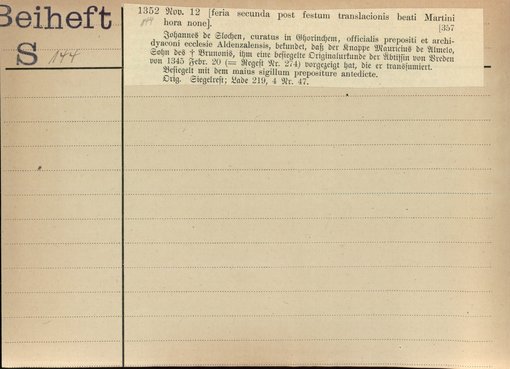 Beiheft
S 144
1352 Nov. 12 [feria secunda post festum translacionis beati Martini
hora none]. [357
Johannes de Slochen, curatus in Ghorinchem, officialis prepositi et archi-
dyaconi ecclesie Aldenzalensis, bekundet, daß der Knappe Mauricius de Almelo,
Sohn des † Brunonis, ihm eine besiegelte Originalurkunde der Äbtissin von Vreden
von 1345 Febr. 20 (= Regest Nr. 274) vorgezeigt hat, die er transsumiert.
Besiegelt mit dem maius sigillum prepositure antedicte.
Orig. Siegelrest; Lade 219, 4 Nr. 47.